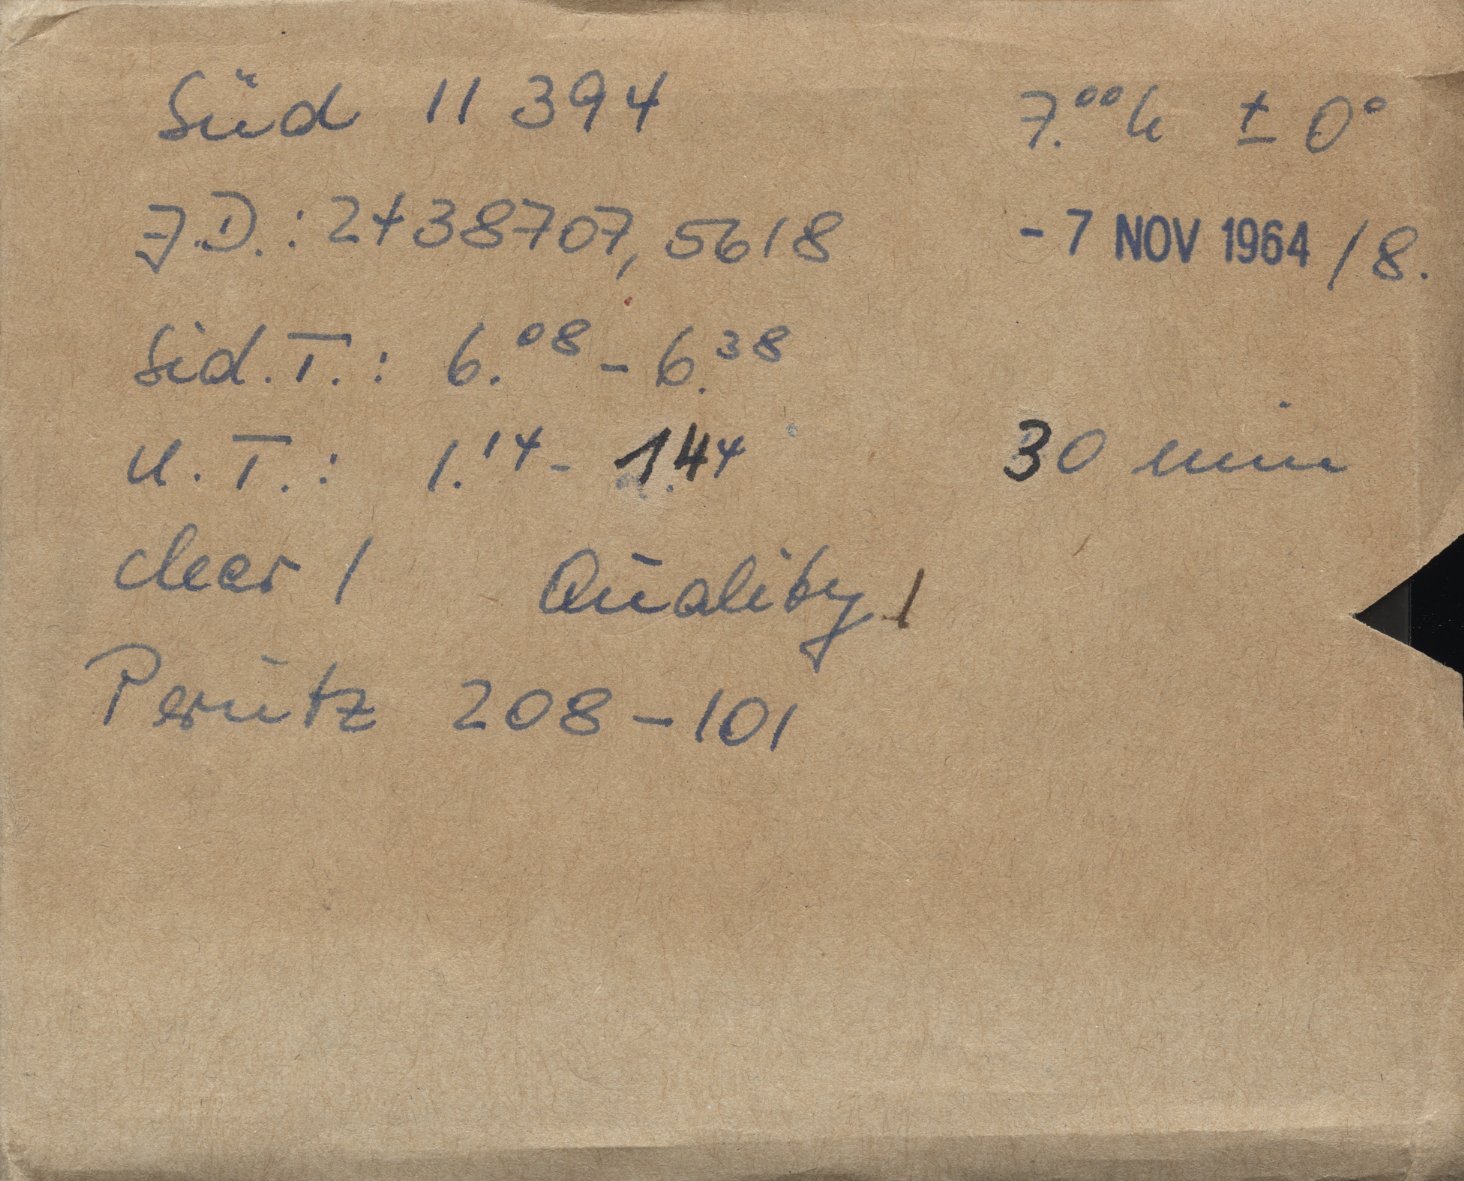 Süd 11 394 7.⁰⁰h ± 0°
J.D.: 2438707,5618 - 7 NOV 1964 / 8.
Sid.T.: 6.⁰⁸ - 6.³⁸
U.T.: 1.¹⁴ - 1.⁴⁴ 30 min
clear 1 Quality 1
Perutz 208-101